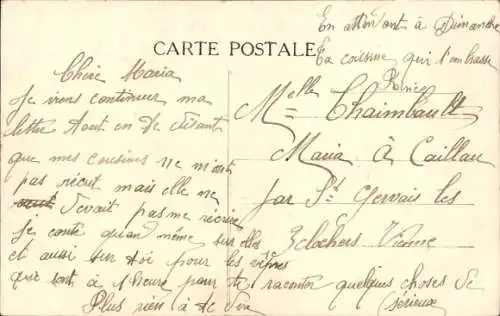 En attendant à Dimanche
Ta cousine qui t'embrasse
CARTE POSTALE
Chère Maria
Je viens continuer ma
lettre tout en te disant
que mes cousins ne m'ont
pas récrit mais elle ne
devait pas me récrire
je conte quand même sur elles
et aussi sur toi pour les vêpres
que sont à 1 heure pour te raconter quelques choses de
sérieux
Plus rien à te dire
Melle Chaimbault
Maria à Caillau
par St Gervais les
3 clochers Vienne